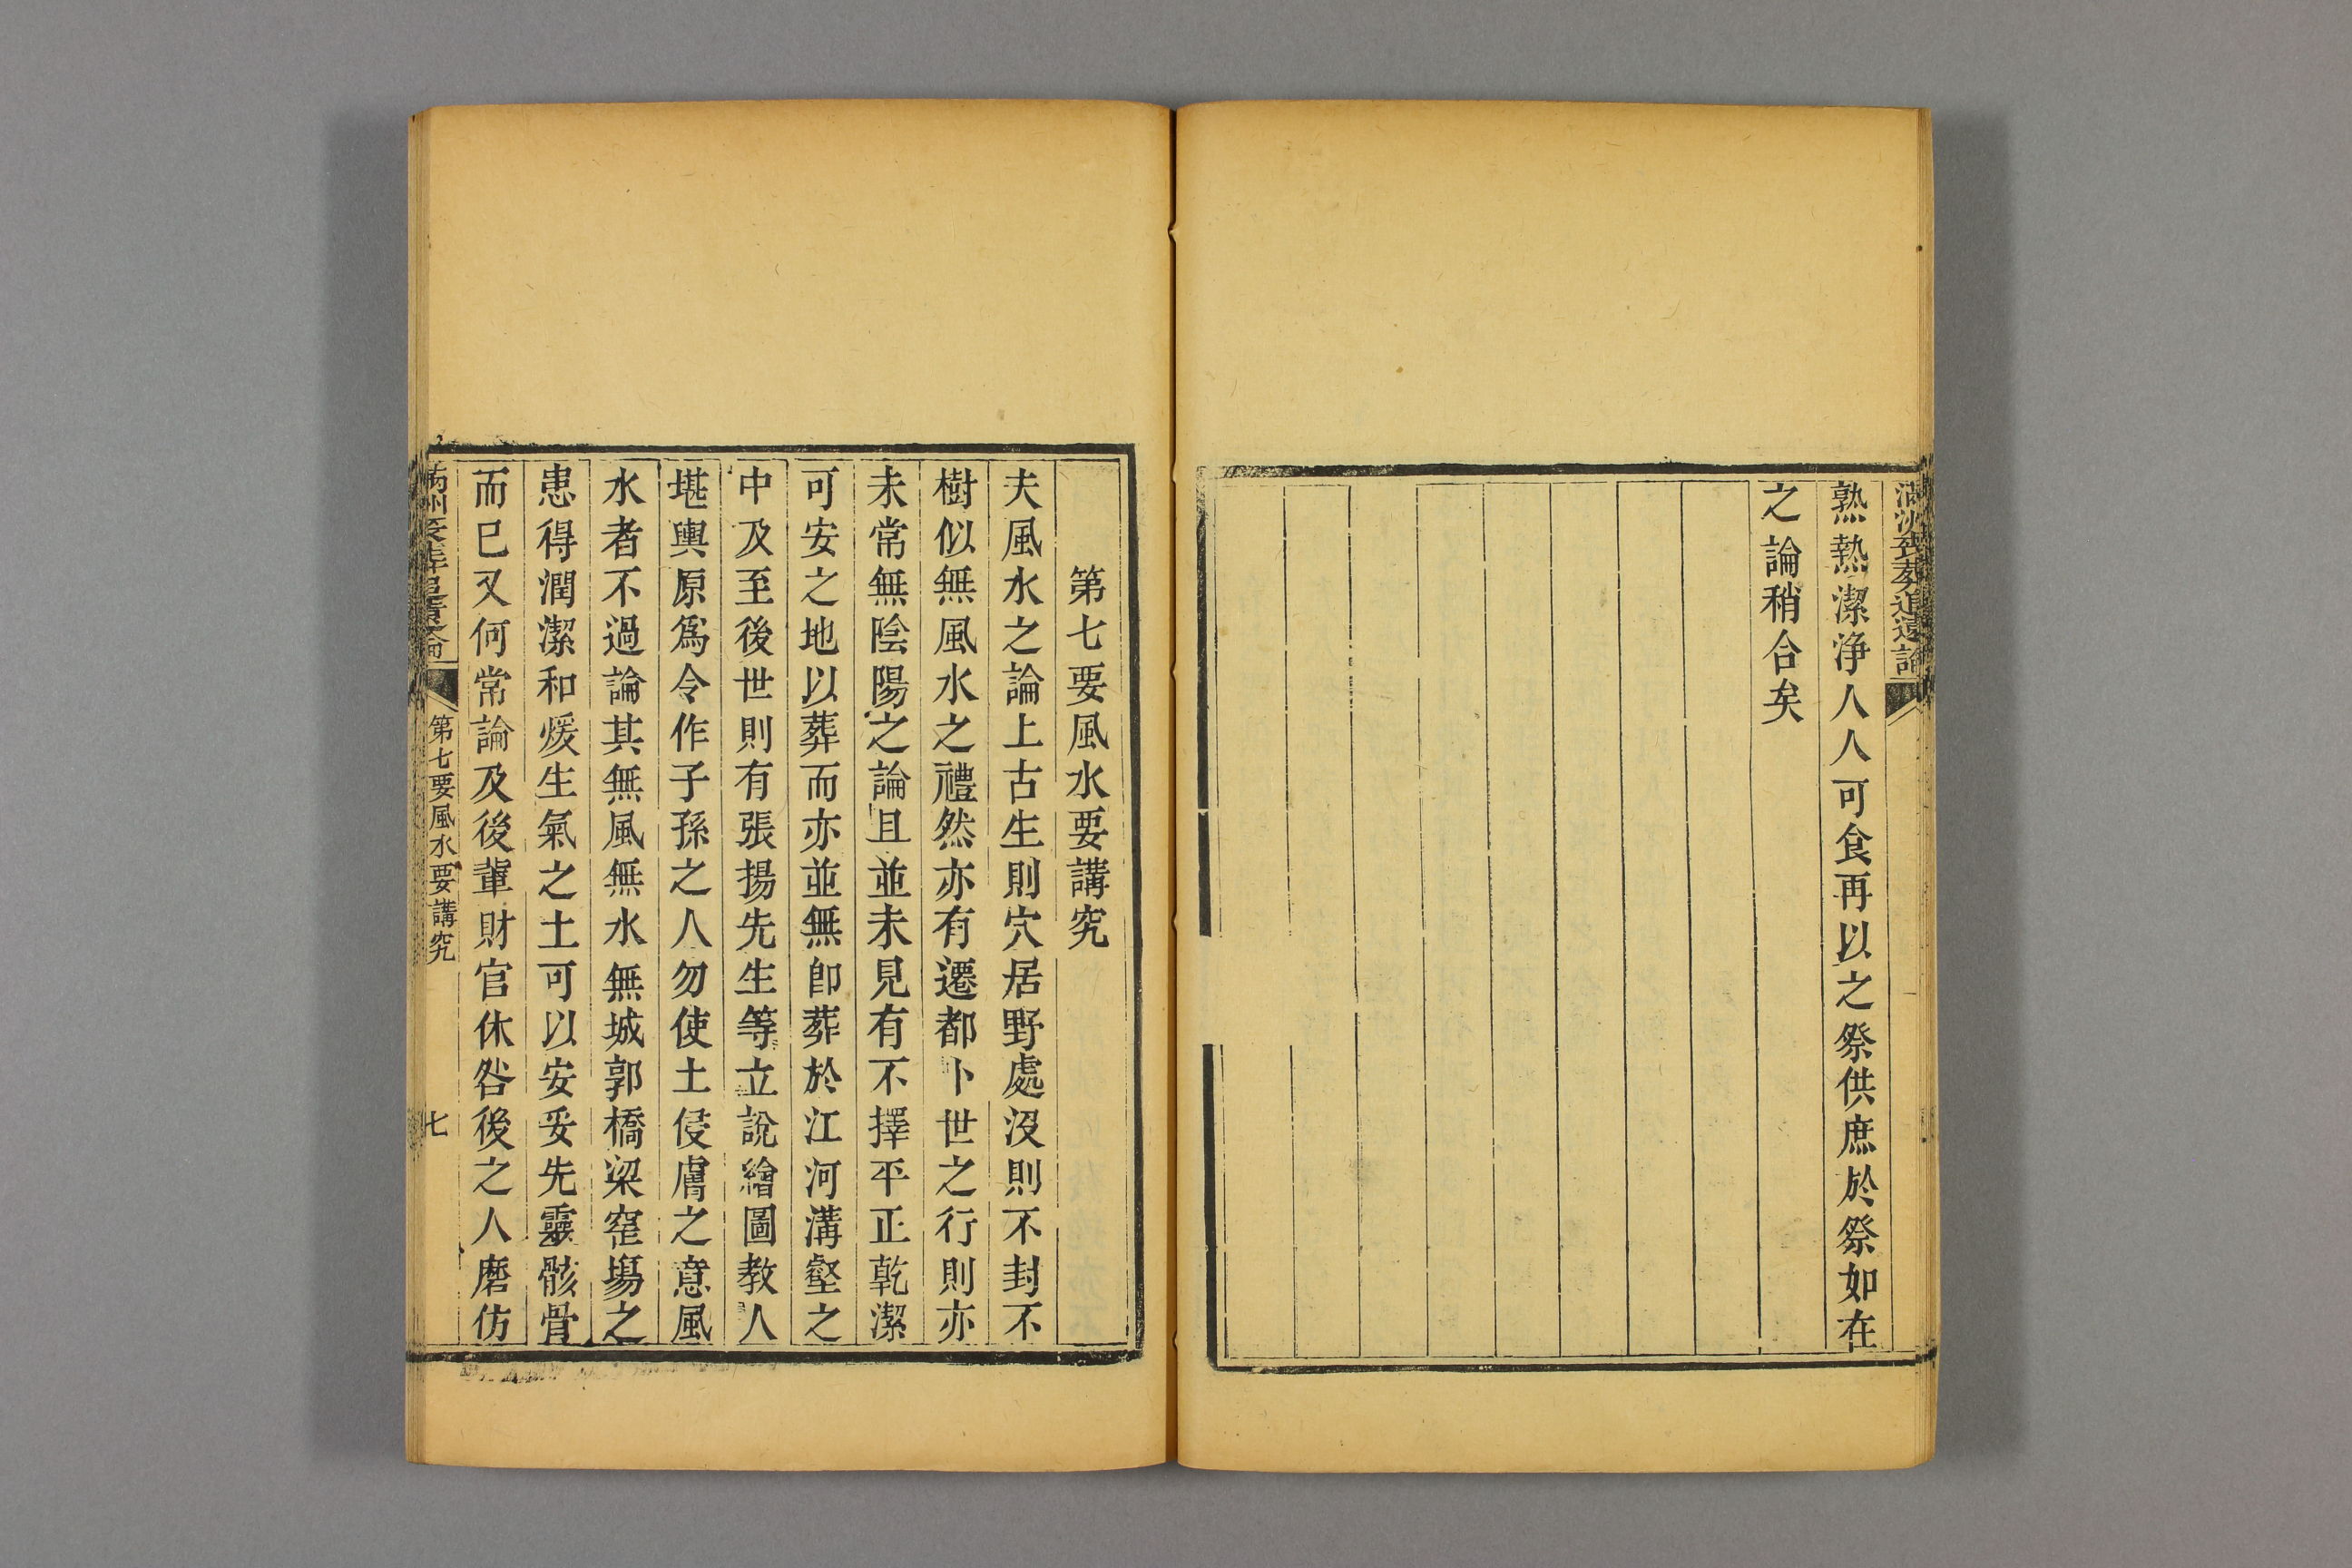 滿洲喪葬追遠論
熟熱潔淨人人可食再以之祭供庶於祭如在
之論稍合矣
第七要風水要講究
夫風水之論上古生則穴居野處沒則不封不
樹似無風水之禮然亦有遷都卜世之行則亦
未常無陰陽之論且並未見有不擇平正乾潔
可安之地以葬而亦並無卽葬於江河溝壑之
中及至後世則有張揚先生等立說繪圖教人
堪輿原爲令作子孫之人勿使土侵膚之意風
水者不過論其無風無水無城郭橋梁窑塲之
患得潤潔和煖生氣之土可以安妥先靈骸骨
而已又何常論及後輩財官休咎後之人磨仿
滿洲喪葬追遠論
第七要風水要講究
七